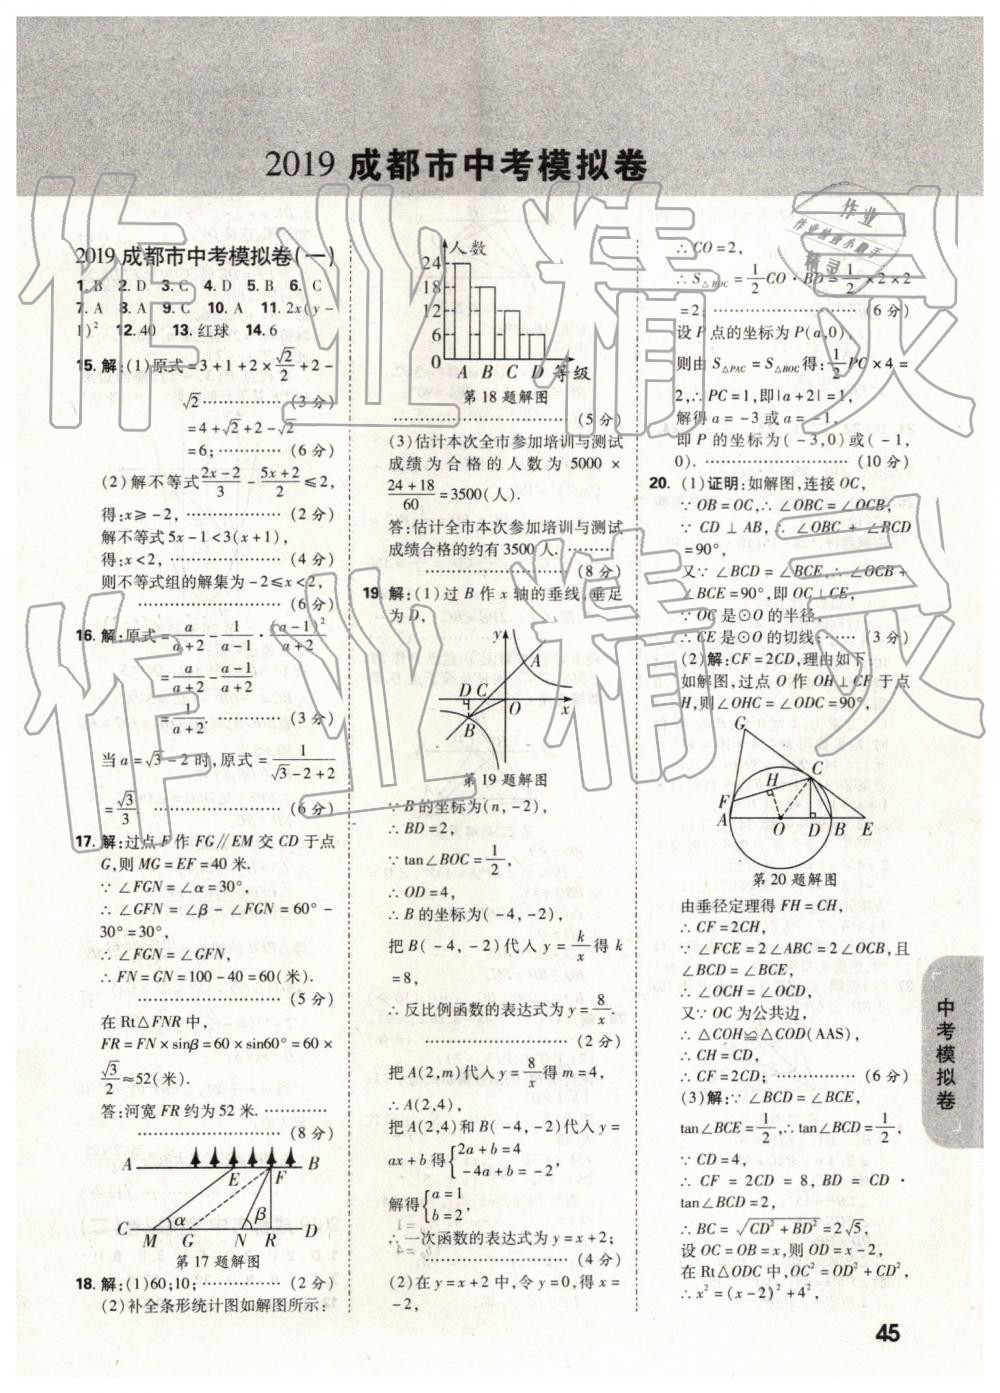 2019 成都市中考模拟卷
2019 成都市中考模拟卷(一)
1. B 2. D 3. C 4. D 5. B 6. C
7. A 8. A 9. C 10. A 11. 2x(y-
1)² 12. 40 13. 红球 14. 6
15. 解:(1)原式=3+1+2×√2/2+2-
√2 ……………… (3分)
=4+√2+2-√2
=6; ……………… (6分)
(2)解不等式(2x-2)/3-(5x+2)/2≤2,
得:x≥-2, ……………… (2分)
解不等式5x-1<3(x+1),
得:x<2, ……………… (4分)
则不等式组的解集为-2≤x<2,
……………… (6分)
16. 解:原式=a/(a+2)-1/(a-1)·(a-1)²/(a+2)
=a/(a+2)-(a-1)/(a+2)
=1/(a+2). ……………… (3分)
当a=√3-2时,原式=1/(√3-2+2)
=√3/3 ……………… (6分)
17. 解:过点F作FG∥EM交CD于点
G,则MG=EF=40米.
∵∠FGN=∠α=30°,
∴∠GFN=∠β-∠FGN=60°-
30°=30°,
∴∠FGN=∠GFN,
∴FN=GN=100-40=60(米).
……………… (5分)
在Rt△FNR中,
FR=FN×sinβ=60×sin60°=60×
√3/2≈52(米).
答:河宽FR约为52米. …………
……………… (8分)
A E F B
C M G N R D
α β
第17题解图
18. 解:(1)60;10; ………… (2分)
(2)补全条形统计图如解图所示:
人数
24
18
12
6
0
A B C D 等级
第18题解图
……………… (5分)
(3)估计本次全市参加培训与测试
成绩为合格的人数为5000×
(24+18)/60=3500(人).
答:估计全市本次参加培训与测试
成绩合格的约有3500人. ………
……………… (8分)
19. 解:(1)过B作x轴的垂线,垂足
为D,
y
A
D C
O x
B
第19题解图
∵B的坐标为(n,-2),
∴BD=2,
∵tan∠BOC=1/2,
∴OD=4,
∴B的坐标为(-4,-2),
把B(-4,-2)代入y=k/x得k
=8,
∴反比例函数的表达式为y=8/x.
……………… (2分)
把A(2,m)代入y=8/x得m=4,
∴A(2,4),
把A(2,4)和B(-4,-2)代入y=
ax+b得{2a+b=4
-4a+b=-2,
解得{a=1
b=2,
∴一次函数的表达式为y=x+2;
……………… (4分)
(2)在y=x+2中,令y=0,得x=
-2,
∴CO=2,
∴S△BOC=1/2CO·BD=1/2×2×2
=2; ……………… (6分)
设P点的坐标为P(a,0),
则由S△PAC=S△BOC得:1/2PC×4=
2,∴PC=1,即|a+2|=1,
解得a=-3或a=-1,
即P的坐标为(-3,0)或(-1,
0). ……………… (10分)
20. (1)证明:如解图,连接OC,
∵OB=OC,∴∠OBC=∠OCB,
∵CD⊥AB,∴∠OBC+∠BCD
=90°,
又∵∠BCD=∠BCE,∴∠OCB+
∠BCE=90°,即OC⊥CE,
∵OC是⊙O的半径,
∴CE是⊙O的切线; …… (3分)
(2)解:CF=2CD,理由如下:
如解图,过点O作OH⊥CF于点
H,则∠OHC=∠ODC=90°,
G
H C
F
A O D B E
第20题解图
由垂径定理得FH=CH,
∴CF=2CH,
∵∠FCE=2∠ABC=2∠OCB,且
∠BCD=∠BCE,
∴∠OCH=∠OCD,
又∵OC为公共边,
∴△COH≌△COD(AAS),
∴CH=CD,
∴CF=2CD; ………… (6分)
(3)解:∵∠BCD=∠BCE,
tan∠BCE=1/2,∴tan∠BCD=1/2,
∵CD=4,
∴CF=2CD=8,BD=CD·
tan∠BCD=2,
∴BC=√(CD²+BD²)=2√5,
设OC=OB=x,则OD=x-2,
在Rt△ODC中,OC²=OD²+CD²,
∴x²=(x-2)²+4²,
中考模拟卷
45
作业精灵
作业精灵
作业
作业检查小助手
精灵